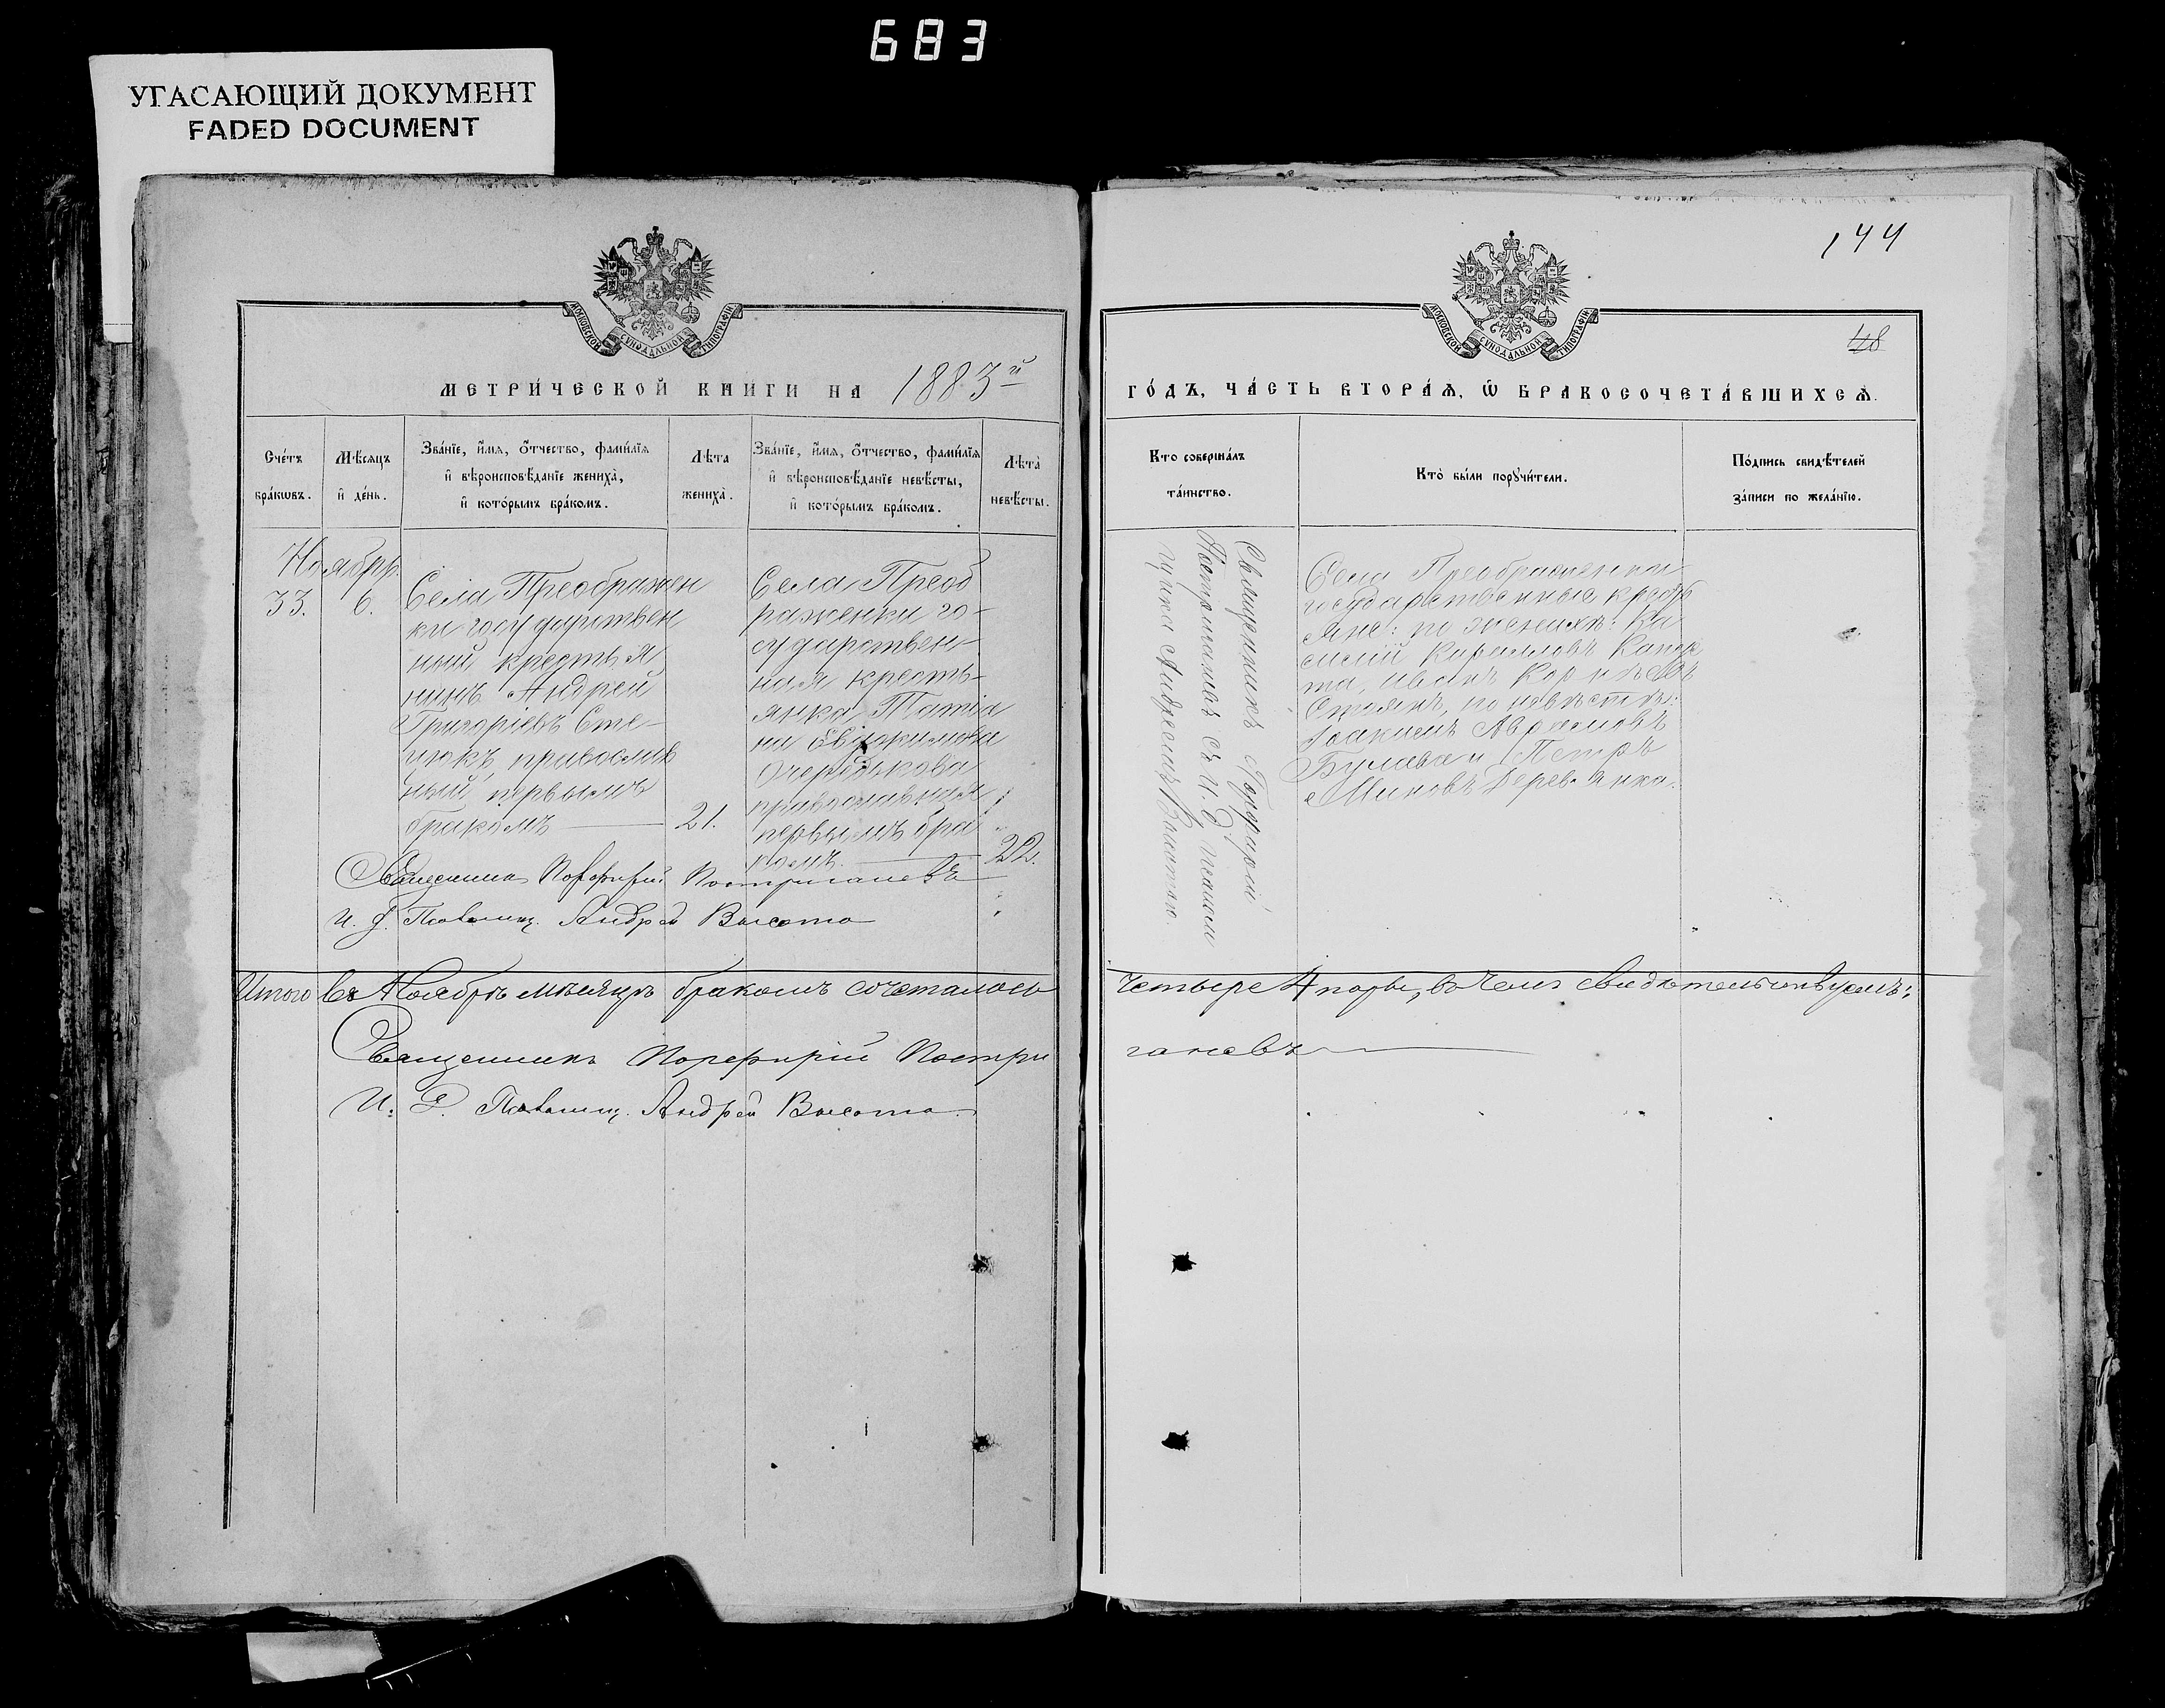 683
УГАСАЮЩИЙ ДОКУМЕНТ
FADED DOCUMENT
МОСКОВСКОЙ СѴНОДАЛЬНОЙ ТИПОГРАФІИ
МЕТРИ́ЧЕСКОЙ КНИГИ НА 1883й
Сче́тъ бра́кѡвъ.
Мѣ́сяцъ и҆ де́нь.
Зва́нїе, и҆́мя, ѻ҆́тчество, фами́лїя
и҆ вѣроисповѣ́данїе жениха̀,
и҆ кото́рымъ бра́комъ.
Лѣ́та жениха̀.
Зва́нїе, и҆́мя, ѻ҆́тчество, фами́лїя
и҆ вѣроисповѣ́данїе невѣ́сты,
и҆ кото́рымъ бра́комъ.
Лѣ́та невѣ́сты.
Ноябрр.
33. 6.
Села Преображен
ки государствен
ный крестья
нинъ Андрей
Григоріевъ Сте-
православ
ный, первымъ
бракомъ
21.
Села Преоб
раженки го-
сударствен-
ная кресть-
янка Татіа
на Евдокимова
Очередькова
православная
первымъ бра
комъ.
22.
Священникъ Порфирій Постригановъ
И. д. Псаломщ. Андрей Высота
Итого въ Ноябрѣ мѣсяцѣ бракомъ сочеталось
Священникъ Порфирій Постри
И. Д. Псаломщ. Андрей Высота
144
МОСКОВСКОЙ СѴНОДАЛЬНОЙ ТИПОГРАФІИ
48
ГО́ДЪ, ЧА́СТЬ ВТОРА́Я, Ѡ҆ БРАКОСОЧЕТА́ВШИХСЯ.
Кто соверша́лъ
та́инство.
Кто̀ бы́ли порꙋчи́тели.
По́дпись свидѣ́телей
за́писи по жела́нїю.
Священникъ Порфирій
Постригановъ съ И. Д. псалом
щика Андреемъ Высотою.
Села Преображенки
государственные кресть
яне: по женихѣ: Ва
силій Кирилловъ
та, Иванъ Корнѣевъ
по невѣстѣ:
Іоакимъ Аврамовъ
Булава и Петръ
Миновъ Деревянка.
четыре 4 пары, въ чемъ свидѣтельствуемъ:
гановъ